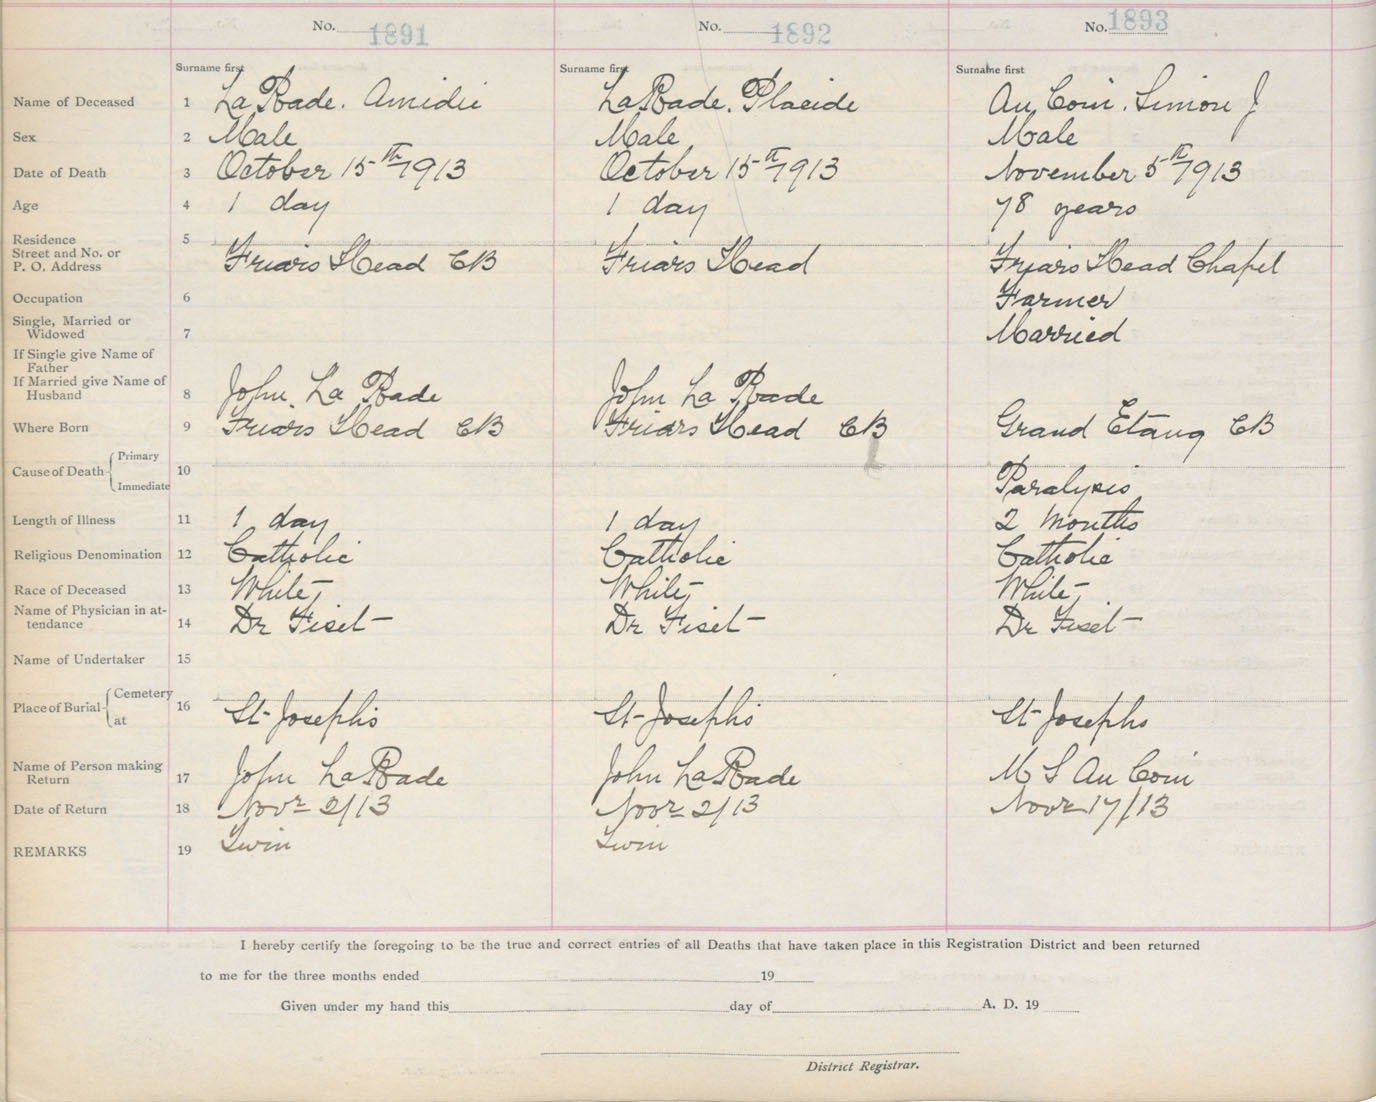 No. 1891 No. 1892 No. 1893
Surname first Surname first Surname first
Name of Deceased 1 La Bade. Amidie LaBade. Placide Au Coin. Simon J
Sex 2 Male Male Male
Date of Death 3 October 15th 1913 October 15th 1913 November 5th 1913
Age 4 1 day 1 day 78 years
Residence 5
Street and No. or
P. O. Address Friars Head CB Friars Head Friars Head Chapel
Occupation 6 Farmer
Single, Married or
Widowed 7 Married
If Single give Name of
Father
If Married give Name of
Husband 8 John La Bade John La Bade
Where Born 9 Friars Head CB Friars Head CB Grand Etang CB
Cause of Death Primary
10
Immediate Paralysis
Length of Illness 11 1 day 1 day 2 months
Religious Denomination 12 Catholic Catholic Catholic
Race of Deceased 13 White White White
Name of Physician in at-
tendance 14 Dr Fiset Dr Fiset Dr Fiset
Name of Undertaker 15
Place of Burial Cemetery
16
at St Josephs St Josephs St Josephs
Name of Person making
Return 17 John LaBade John LaBade M S Au Coin
Date of Return 18 Novr 2/13 Novr 2/13 Novr 17/13
REMARKS 19 Twin Twin
I hereby certify the foregoing to be the true and correct entries of all Deaths that have taken place in this Registration District and been returned
to me for the three months ended 19
Given under my hand this day of A. D. 19
District Registrar.